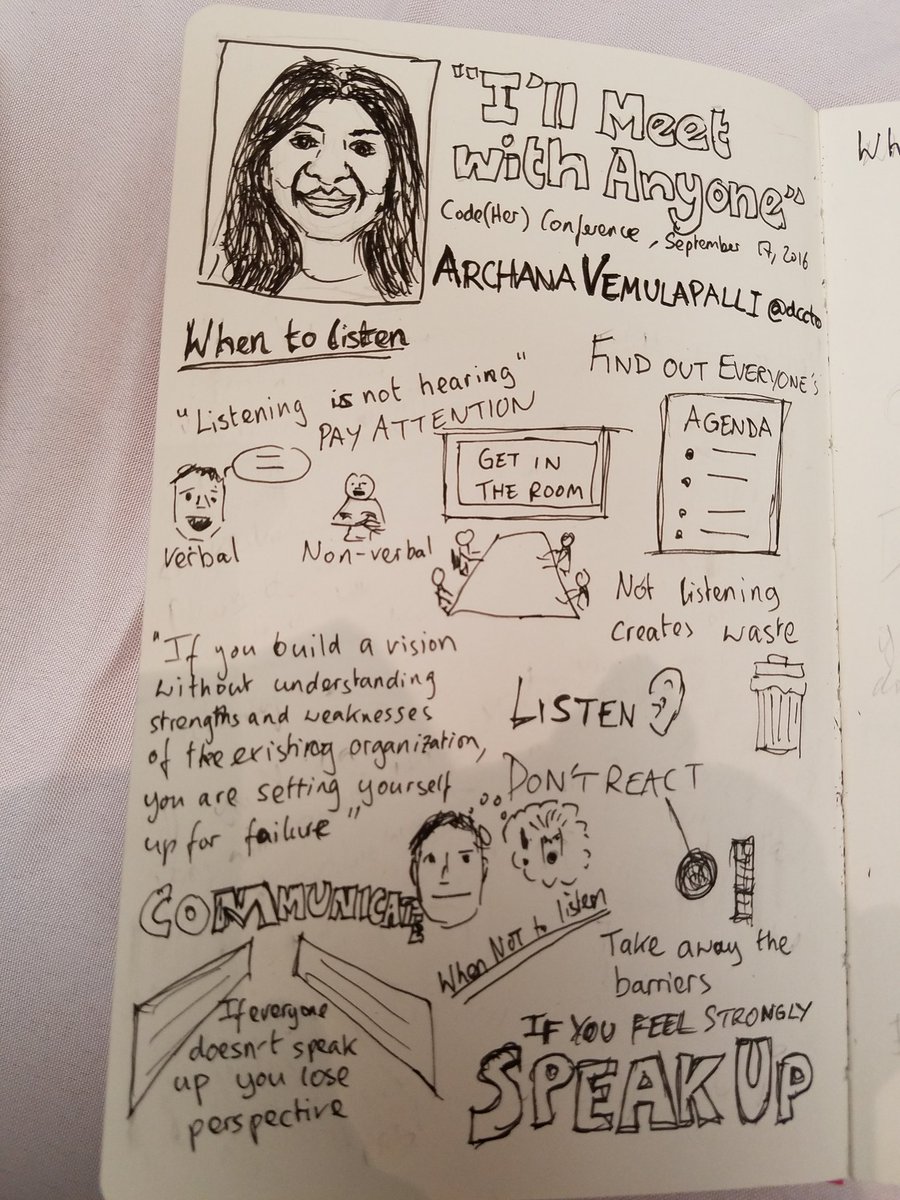 "I'll Meet
with Anyone"
Code(Her) Conference, September 17, 2016
ARCHANA VEMULAPALLI @dccto
When to listen
"Listening is not hearing"
PAY ATTENTION
Verbal
Non-verbal
GET IN
THE ROOM
FIND OUT EVERYONE'S
AGENDA
Not listening
creates waste
"If you build a vision
without understanding
strengths and weaknesses
of the existing organization,
you are setting yourself
up for failure"
LISTEN
DON'T REACT
COMMUNICATE
If everyone
doesn't speak
up you lose
perspective
When NOT to listen
Take away the
barriers
IF YOU FEEL STRONGLY
SPEAK UP
Wh